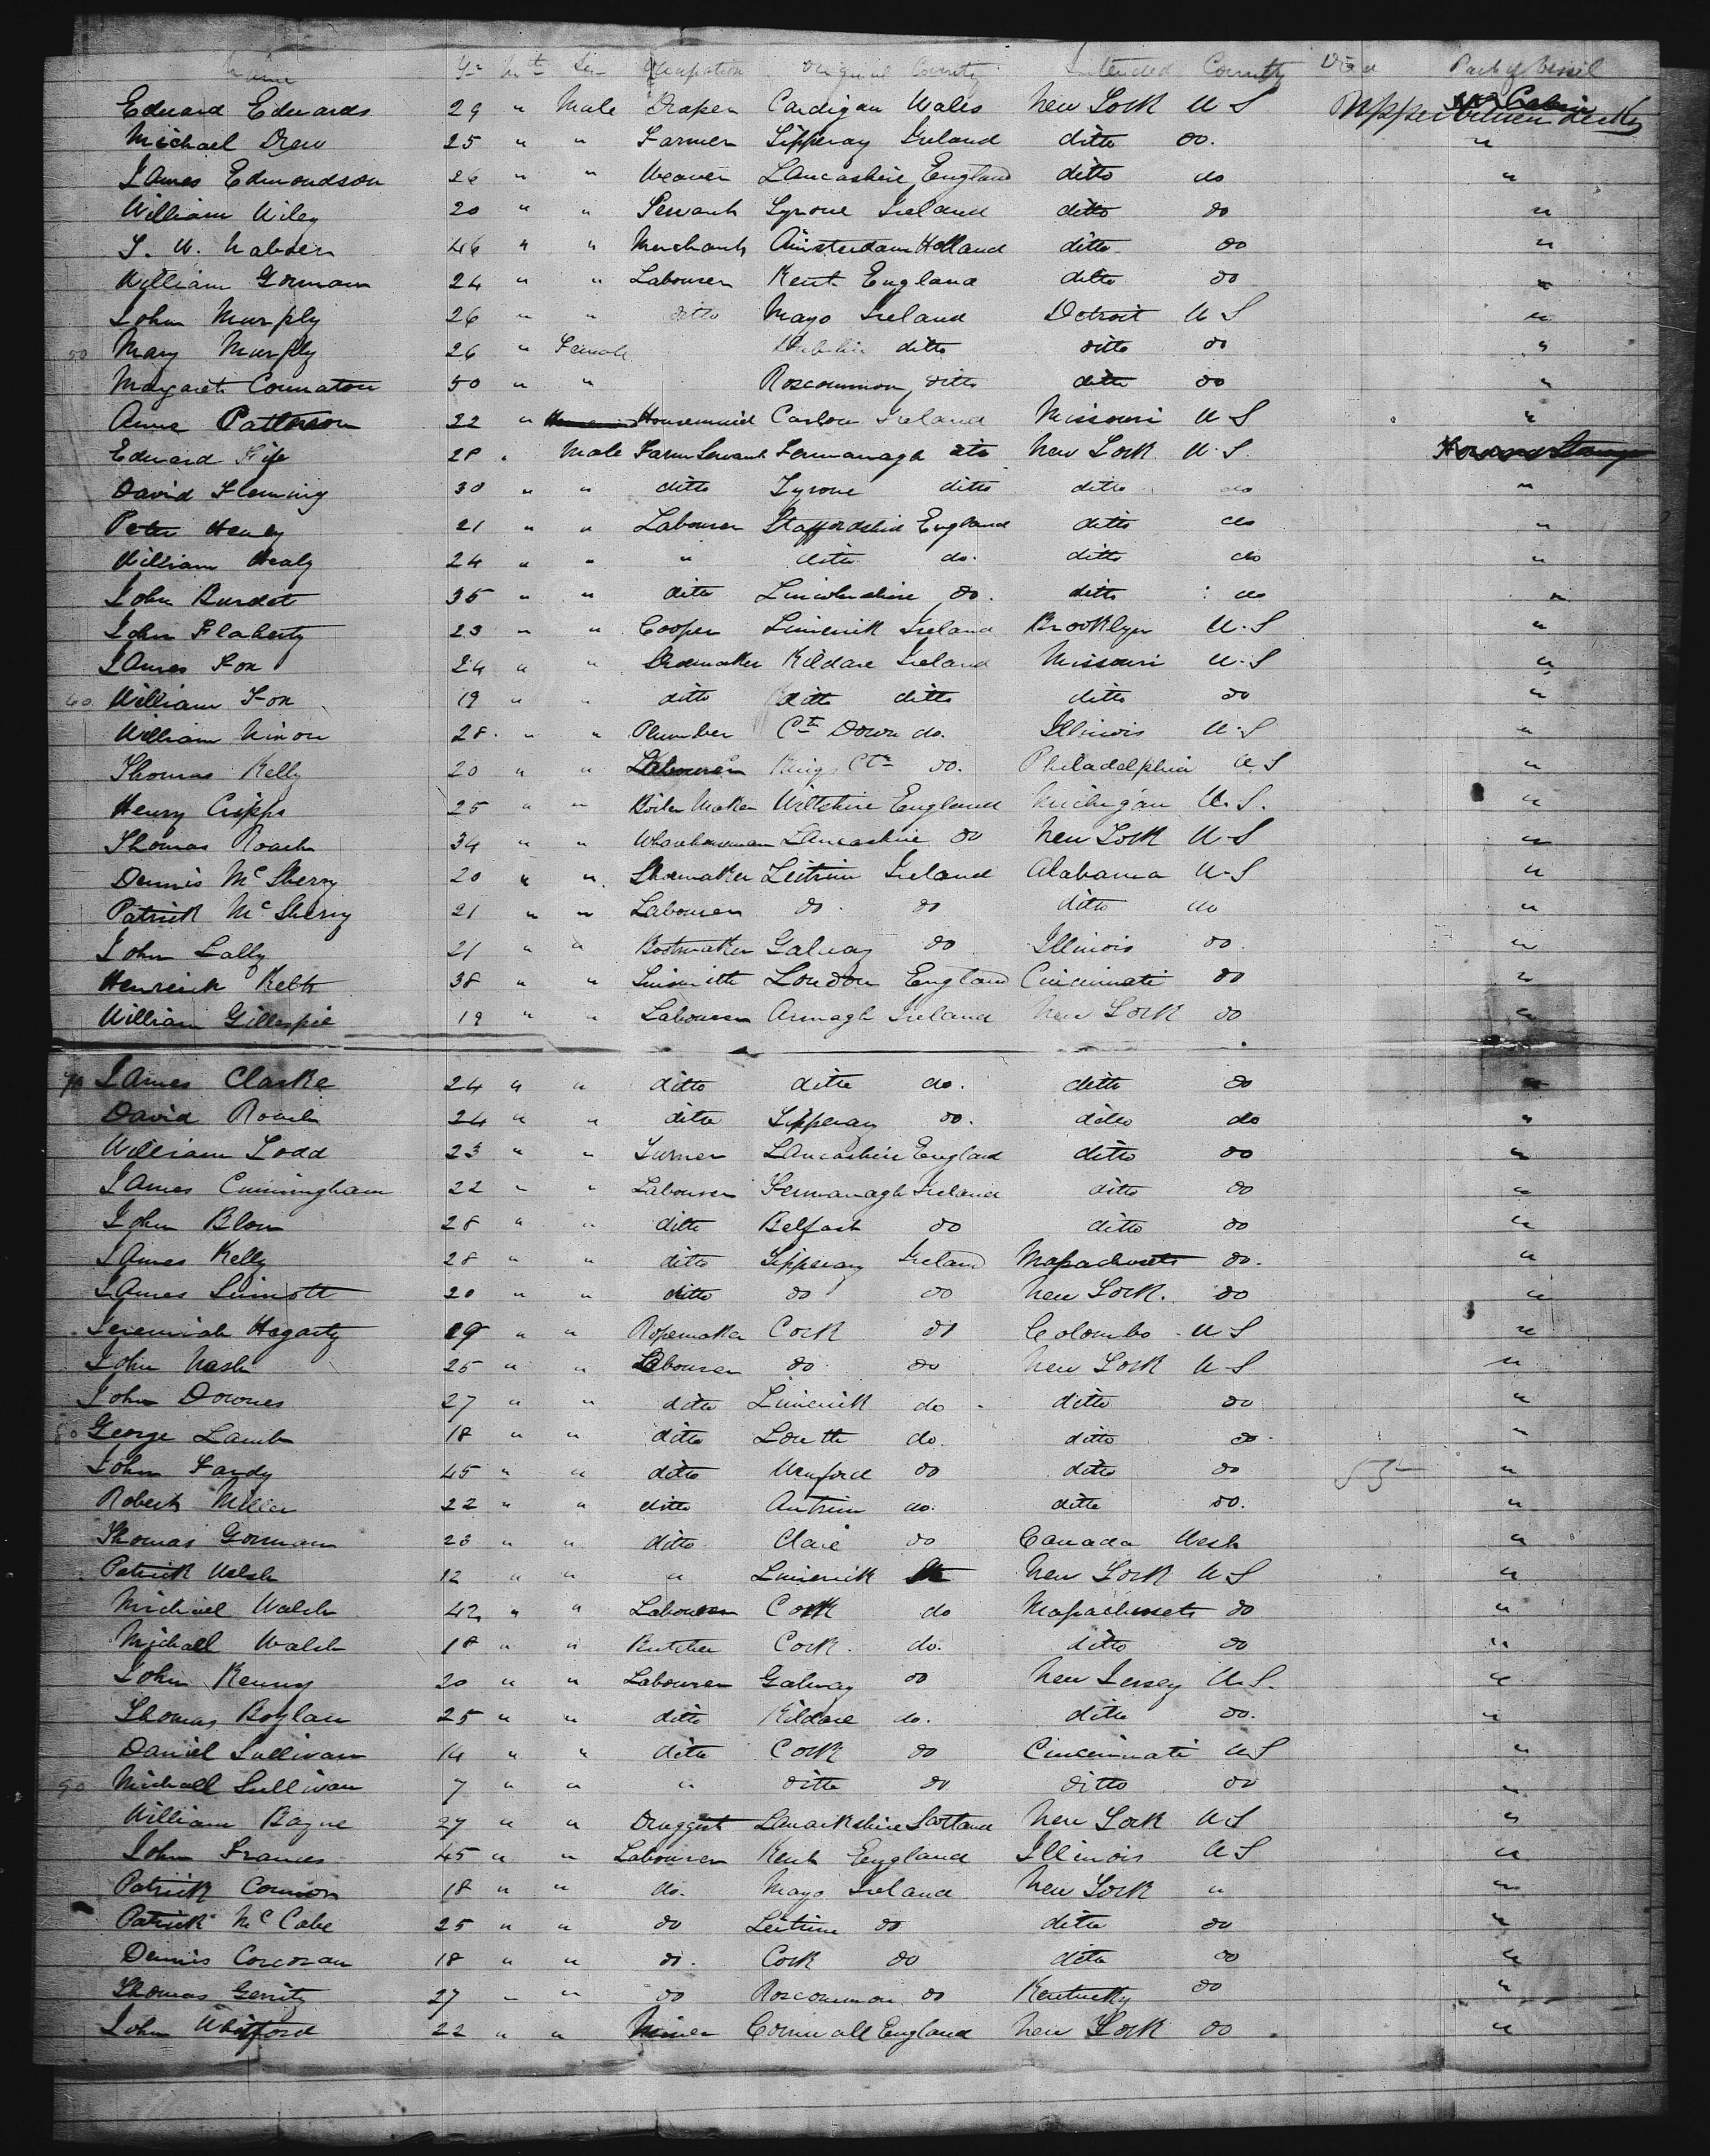 Name Yrs Mth Sex Occupation Original Country Intended Country Died Part of Vessel
Edward Edwards 29 " Male Draper Cardigan Wales New York U S Upper between decks
Michael Drew 25 " " Farmer Tipperay Ireland ditto do. "
James Edmondson 26 " " Weaver Lancashire England ditto do "
William Wiley 20 " " Servant Tyrone Ireland ditto do "
46 " " Merchant Amsterdam Holland ditto do "
William Gorman 24 " " Labourer Kent England ditto do "
John Murphy 26 " " ditto Mayo Ireland Detroit U S "
50 Mary Murphy 26 " Female Dublin ditto ditto do "
Margaret Connaton 50 " " Roscommon ditto ditto do "
Anne Patterson 22 " Housemaid Carlow Ireland Missouri U S "
Edward Fife 28 " Male Farm Servant Fermanagh dto New York U.S.
David Fleming 30 " " ditto Tyrone ditto ditto do "
Peter Healy 21 " " Labourer Staffordshire England ditto do "
William Healy 24 " " " ditto do. ditto do "
John Burdet 35 " " ditto Lincolnshire do. ditto do "
John Flaherty 23 " " Cooper Limerick Ireland Brooklyn U.S "
James Fox 24 " " Shoemaker Kildare Ireland Missouri U.S "
60 William Fox 19 " " ditto ditto ditto ditto do "
William Nixon 28. " " Plumber Cty Down do. Illinois U.S "
Thomas Kelly 20 " " Labourer Kings Cty do. Philadelphia U S "
Henry Cripps 25 " " Boiler Maker Wiltshire England Michigan U.S. "
Thomas Roach 34 " " Warehouseman Lancashire do New York U S "
Dennis McSherry 20 " " Shoemaker Leitrim Ireland Alabama U.S "
Patrick McSherry 21 " " Labourer do do ditto do "
John Lally 21 " " Bootmaker Galway do Illinois do "
Henrich 38 " " Tinsmith London England Cincinnati do "
William Gillespie 19 " " Labourer Armagh Ireland New York do "
70 James Clarke 24 " " ditto ditto do. ditto do "
David Roach 24 " " ditto Tipperay do. ditto do "
William Todd 23 " " Turner Lancashire England ditto do "
James Cunningham 22 " " Labourer Fermanagh Ireland ditto do "
John Blow 28 " " ditto Belfast do ditto do "
James Kelly 28 " " ditto Tipperay Ireland Massachusets do. "
James Sinnott 20 " " ditto do do New York. do "
Jeremiah Hagarty 29 " " Ropemaker Cork do Colombo U S "
John Nash 25 " " Labourer do do New York U S "
John Downes 27 " " ditto Limerick do ditto do "
80 George Lamb 18 " " ditto Louth do. ditto do "
John Fardy 45 " " ditto Wexford do ditto do "
Robert Miller 22 " " ditto Antrim do. ditto do. "
Thomas Gorman 23 " " ditto Clare do Canada West "
Patrick Walsh 12 " " " Limerick New York U S "
Michael Walsh 42 " " Labourer Cork do Massachusets do "
Michall Walsh 18 " " Butcher Cork do. ditto do "
John Kenny 20 " " Labourer Galway do New Jersey U.S. "
Thomas Boylan 25 " " ditto Kildare do. ditto do. "
Daniel Sullivan 14 " " ditto Cork do Cincinnati U S "
90 Michall Sullivan 7 " " " ditto do ditto do "
William Bayne 27 " " Druggist Lanarkshire Scotland New York U S "
John Frances 45 " " Labourer Kent England Illinois U S "
Patrick Connor 18 " " do. Mayo Ireland New York " "
Patrick McCabe 25 " " do Leitrim do ditto do "
Dennis Corcoran 18 " " do. Cork do ditto do "
Thomas Gerrity 27 " " do Roscommon do Kentucky do "
John Whitford 22 " " Miner Cornwall England New York do "